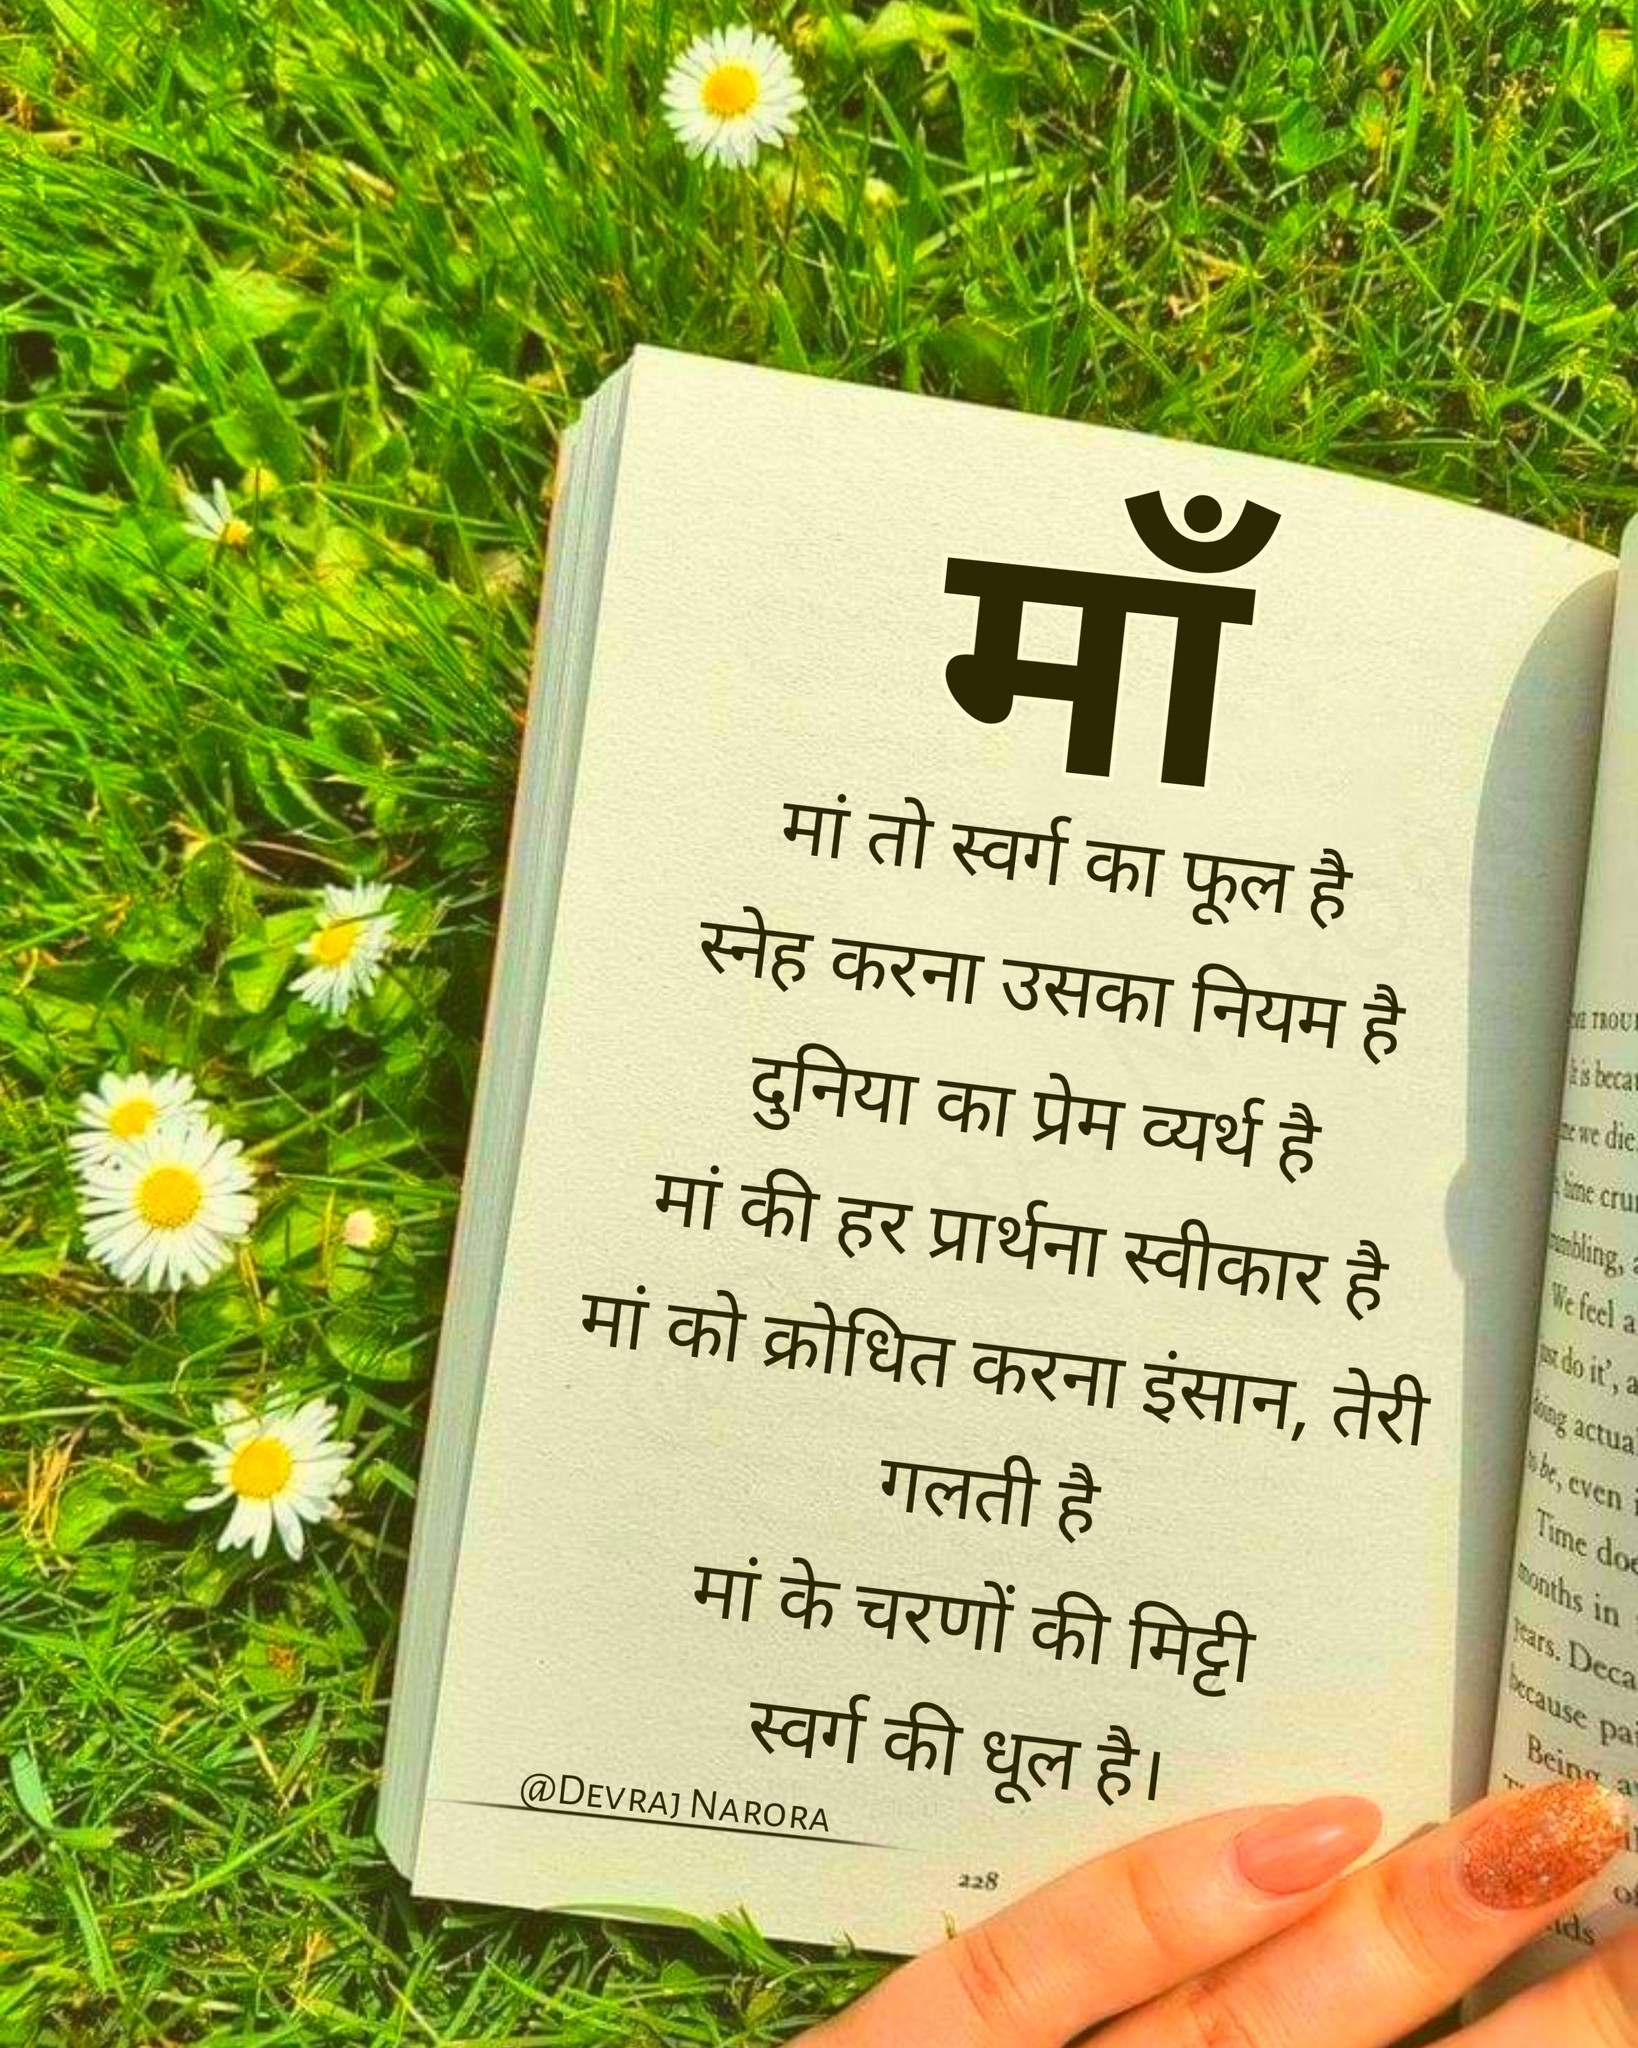 माँ
मां तो स्वर्ग का फूल है
स्नेह करना उसका नियम है
दुनिया का प्रेम व्यर्थ है
मां की हर प्रार्थना स्वीकार है
मां को क्रोधित करना इंसान, तेरी
गलती है
मां के चरणों की मिट्टी
स्वर्ग की धूल है।
@DEVRAJ NARORA
228
TROU
is beca
we die
time cru
We feel a
do it', a
actual
be, even
Time doe
months in
years. Deca
because pai
Being